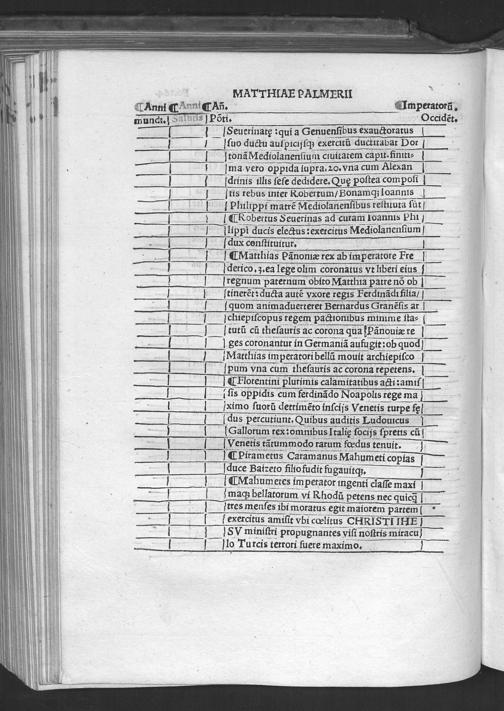 MATTHIAE PALMERII
¶Anni ¶Anni ¶Añ. ¶Imperatorũ.
mundi. Salutis Põti. Occidẽt.
Seuerinatẹ: qui a Genuensibus exauctoratus
suo ductu auspicijsqȝ exercitũ ductitabat Dor
tonã Mediolanensium ciuitatem capit. finiti-
ma vero oppida supra .20. vna cum Alexan
drinis illis sese dedidere. Quę postea composi
tis rebus inter Robertum/Bonamqȝ Ioannis
Philippi matrẽ Mediolanensibus restituta sũt
¶Robertus Seuerinas ad curam Ioannis Phi
lippi ducis electus: exercitus Mediolanensium
dux constituitur.
¶Matthias Pãnoniæ rex ab imperatore Fre
derico .3. ea lege olim coronatus vt liberi eius
regnum paternum obito Matthia patre nõ ob
tinerẽt: ducta autẽ vxore regis Ferdinãdi filia/
quom animaduerteret Bernardus Granẽsis ar
chiepiscopus regem pactionibus minime sta-
tutũ cũ thesauris ac corona qua Pãnoniæ re
ges coronantur in Germaniã aufugit: ob quod
Matthias imperatori bellũ mouit archiepisco
pum vna cum thesauris ac corona repetens.
¶Florentini plurimis calamitatibus acti: amis
sis oppidis cum ferdinãdo Noapolis rege ma
ximo suorũ detrimẽto inscijs Venetis turpe fę
dus percutiunt. Quibus auditis Ludouicus
Gallorum rex: omnibus Italię socijs spretis cũ
Venetis tãtummodo rarum fœdus tenuit.
¶Pirametus Caramanus Mahumeti copias
duce Baizeto filio fudit fugauitqȝ.
¶Mahumetes imperator ingenti classe maxi
maqȝ bellatorum vi Rhodũ petens nec quicq̃
tres menses ibi moratus egit maiorem partem
exercitus amisit vbi cœlitus CHRISTI IHE
SV ministri propugnantes visi nostris miracu
lo Turcis terrori fuere maximo.